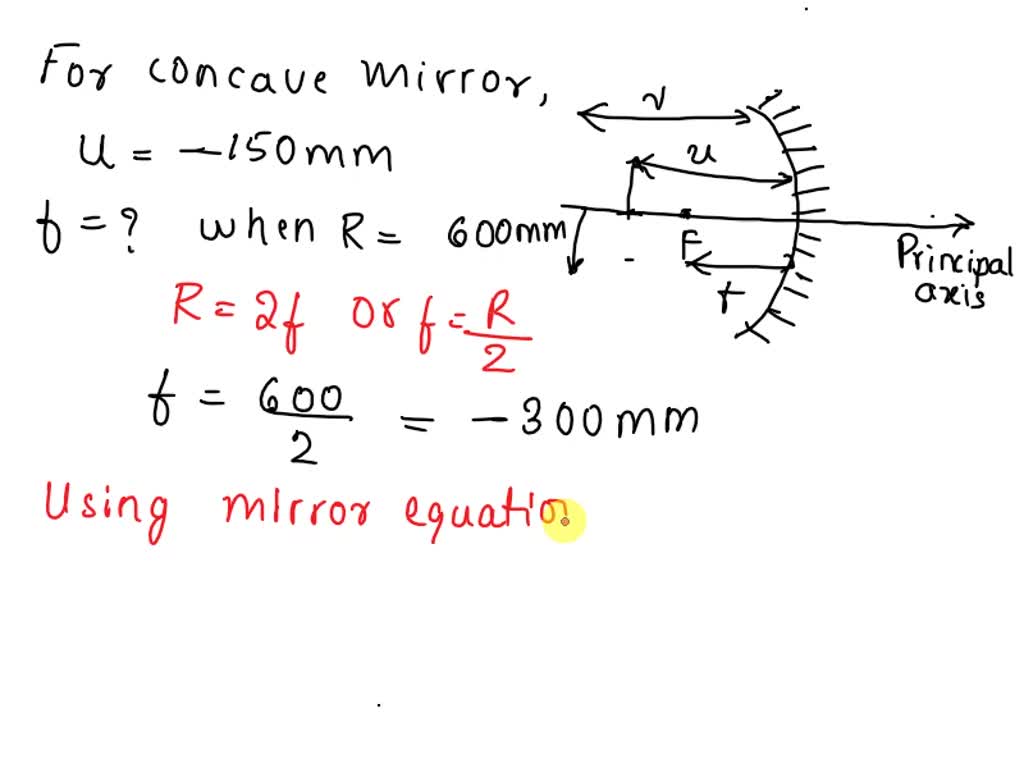 For concave mirror,
u = -150mm
f = ? when R = 600mm
R = 2f or f = R/2
f = 600/2 = -300mm
Using mirror equation
v
u
F
f
Principal
axis